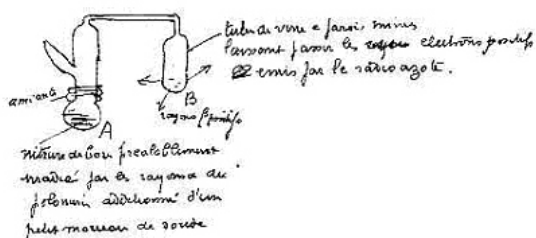 tube de verre à parois minces
laissant passer les electrons positifs
emis par le radioazote.
amiante
A
B
rayons β positifs
nitrure de bore préalablement
irradié par les rayons du
polonium additionné d'un
petit morceau de soude